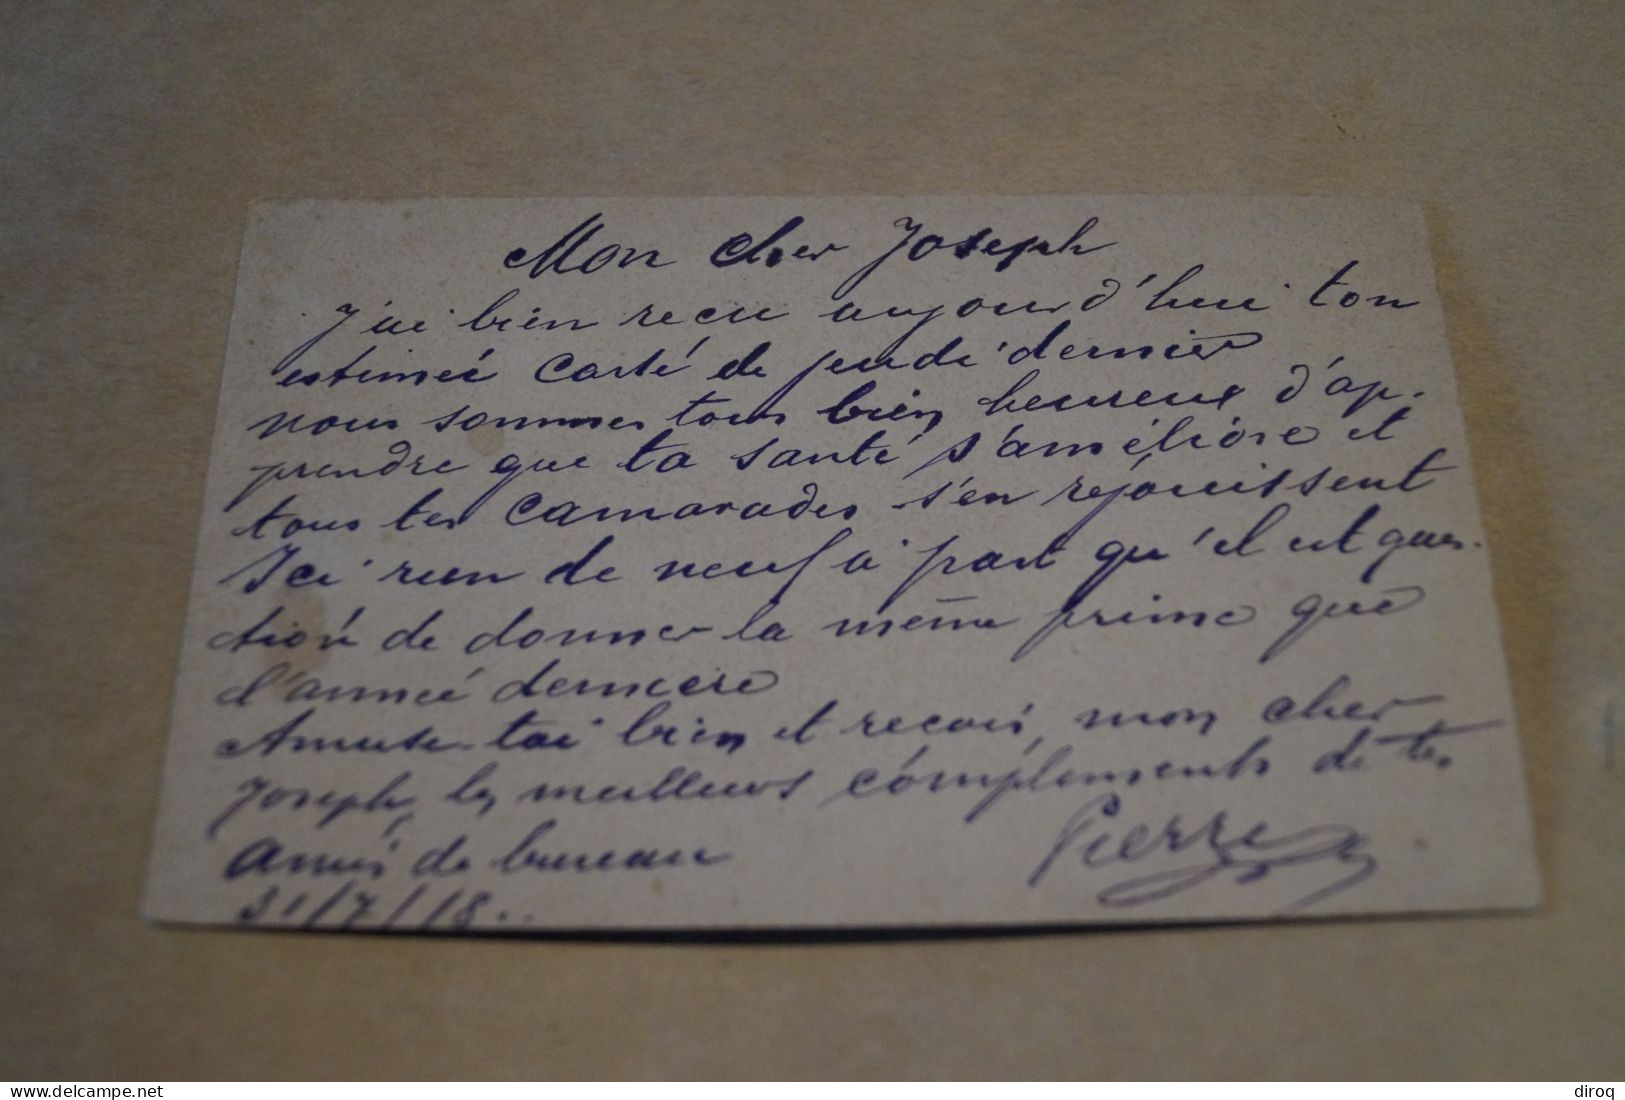 Mon cher Joseph
J'ai bien recu aujourd'hui ton
estimée carte de jeudi dernier
nous sommes tous bien heureux d'ap-
prendre que ta santé s'améliore et
tous tes camarades s'en réjouissent
Ici rien de neuf à part qu'il est ques-
tion de donner la même prime que
l'année dernière
Amuse-toi bien et recois, mon cher
Joseph, les meilleurs compléments de tes
amis de bureau
Pierre
31/7/18..
www.delcampe.net
diroq